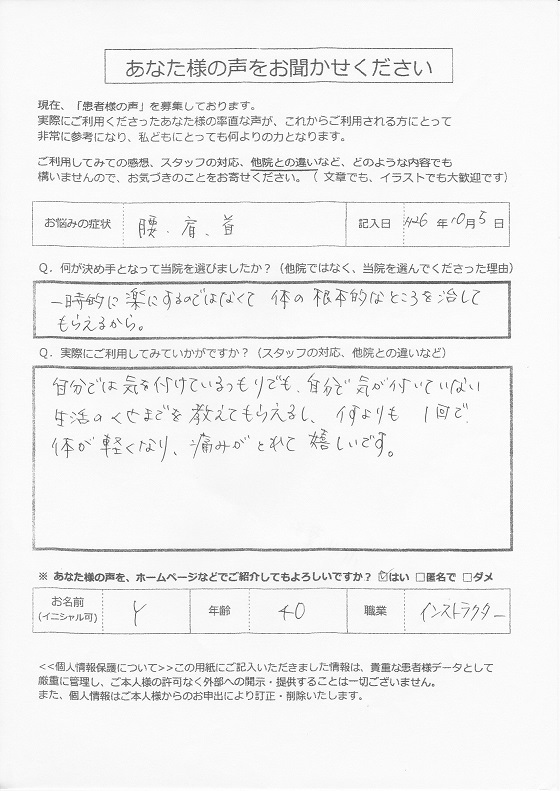 あなた様の声をお聞かせください
現在、「患者様の声」を募集しております。
実際にご利用くださったあなた様の率直な声が、これからご利用される方にとって
非常に参考になり、私どもにとっても何よりの力となります。
ご利用してみての感想、スタッフの対応、他院との違いなど、どのような内容でも
構いませんので、お気づきのことをお寄せください。（ 文章でも、イラストでも大歓迎です）
お悩みの症状 腰、肩、首 記入日 H26 年 10月 5 日
Q．何が決め手となって当院を選びましたか？（他院ではなく、当院を選んでくださった理由）
一時的に楽にするのではなくて 体の根本的なところを治して
もらえるから。
Q．実際にご利用してみていかがですか？（スタッフの対応、他院との違いなど）
自分では気を付けているつもりでも、自分で気が付いていない
生活のくせまでを教えてもらえるし、何よりも 1回で、
体が軽くなり、痛みがとれて嬉しいです。
※ あなた様の声を、ホームページなどでご紹介してもよろしいですか？ ☑はい □匿名で □ダメ
お名前
(イニシャル可) Y 年齢 40 職業 インストラクター
<<個人情報保護について>>この用紙にご記入いただきました情報は、貴重な患者様データとして
厳重に管理し、ご本人様の許可なく外部への開示・提供することは一切ございません。
また、個人情報はご本人様からのお申出により訂正・削除いたします。